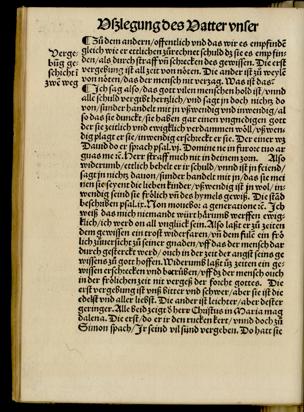 Vßlegung des Vatter vnser
¶ Zů dem andern / offenlich vnd das wir es empfindē
gleich wie er etlichen zůrechnet schuld dz sie es empfin-
den / als durch straff vñ schrecken des gewissen. Die erst
vergebung ist all zeit von nöten. Die ander ist zů weylē
von nöten / das der mensch nit verzag. Was ist das?
Verge-
büg ge-
schicht i
zwē weg
¶ Ich sag also / das gott vilen menschen hold ist / vnnd
alle schuld vergibt hertzlich / vnd sagt jn doch nichtz do
von / sünder handelt mit jn vßwendig vnd inwendig / al
so das sie dunckt / sie haben gar einen vngnedigen gott
der sie zeitlich vnd ewigklich verdammen wöll / vßwen-
dig plagt er sie / inwendig erschreckt er sie. Der einer wz
Dauid do er sprach psal. vj. Domine ne in furore tuo ar
guas me ꝛc. Herr straff mich nit in deinem zorn. Also
widerumb / ettlich behelt er ir schuld / vnnd ist jn feind /
sagt jn nichtz dauon / sünder handelt mit jn / das sie mei
nen sie seyent die lieben kinder / vßwendig ist jn wol / in-
wendig seind sie frölich vñ des hymels gewiß. Die stād
beschriben psal. ix. Non mouebor a generatione ꝛc. Ich
weiß das mich niemande würt härumb werffen ewig-
klich / ich werd on all vnglück sein. Also laßt er zů zeiten
dem gewissen ein trost widerfaren / vñ dem fule ein frö
lich zůuersicht zů seiner gnaden / vff das der mensch dar
durch gesterckt werd / ouch in der zeit der angst seins ge
wissens zů gott hoffen. Widerumb laßt er zů zeiten ein ge-
wissen erschrecken vnd betrüben / vff dz der mensch ouch
in der frölichen zeit nit vergeß der forcht gottes. Die
erst vergebung ist vnß bitter vnd schwer / aber sie ist die
edelst vnd aller liebst. Die ander ist leichter / aber dester
geringer. Alle beid zeigt herr Christus in Maria mag
dalena. Die erst / do er ir den rucken kert / vnnd doch zů
Simon sprach / Jr seind vil sünd vergeben. Do hatt sie